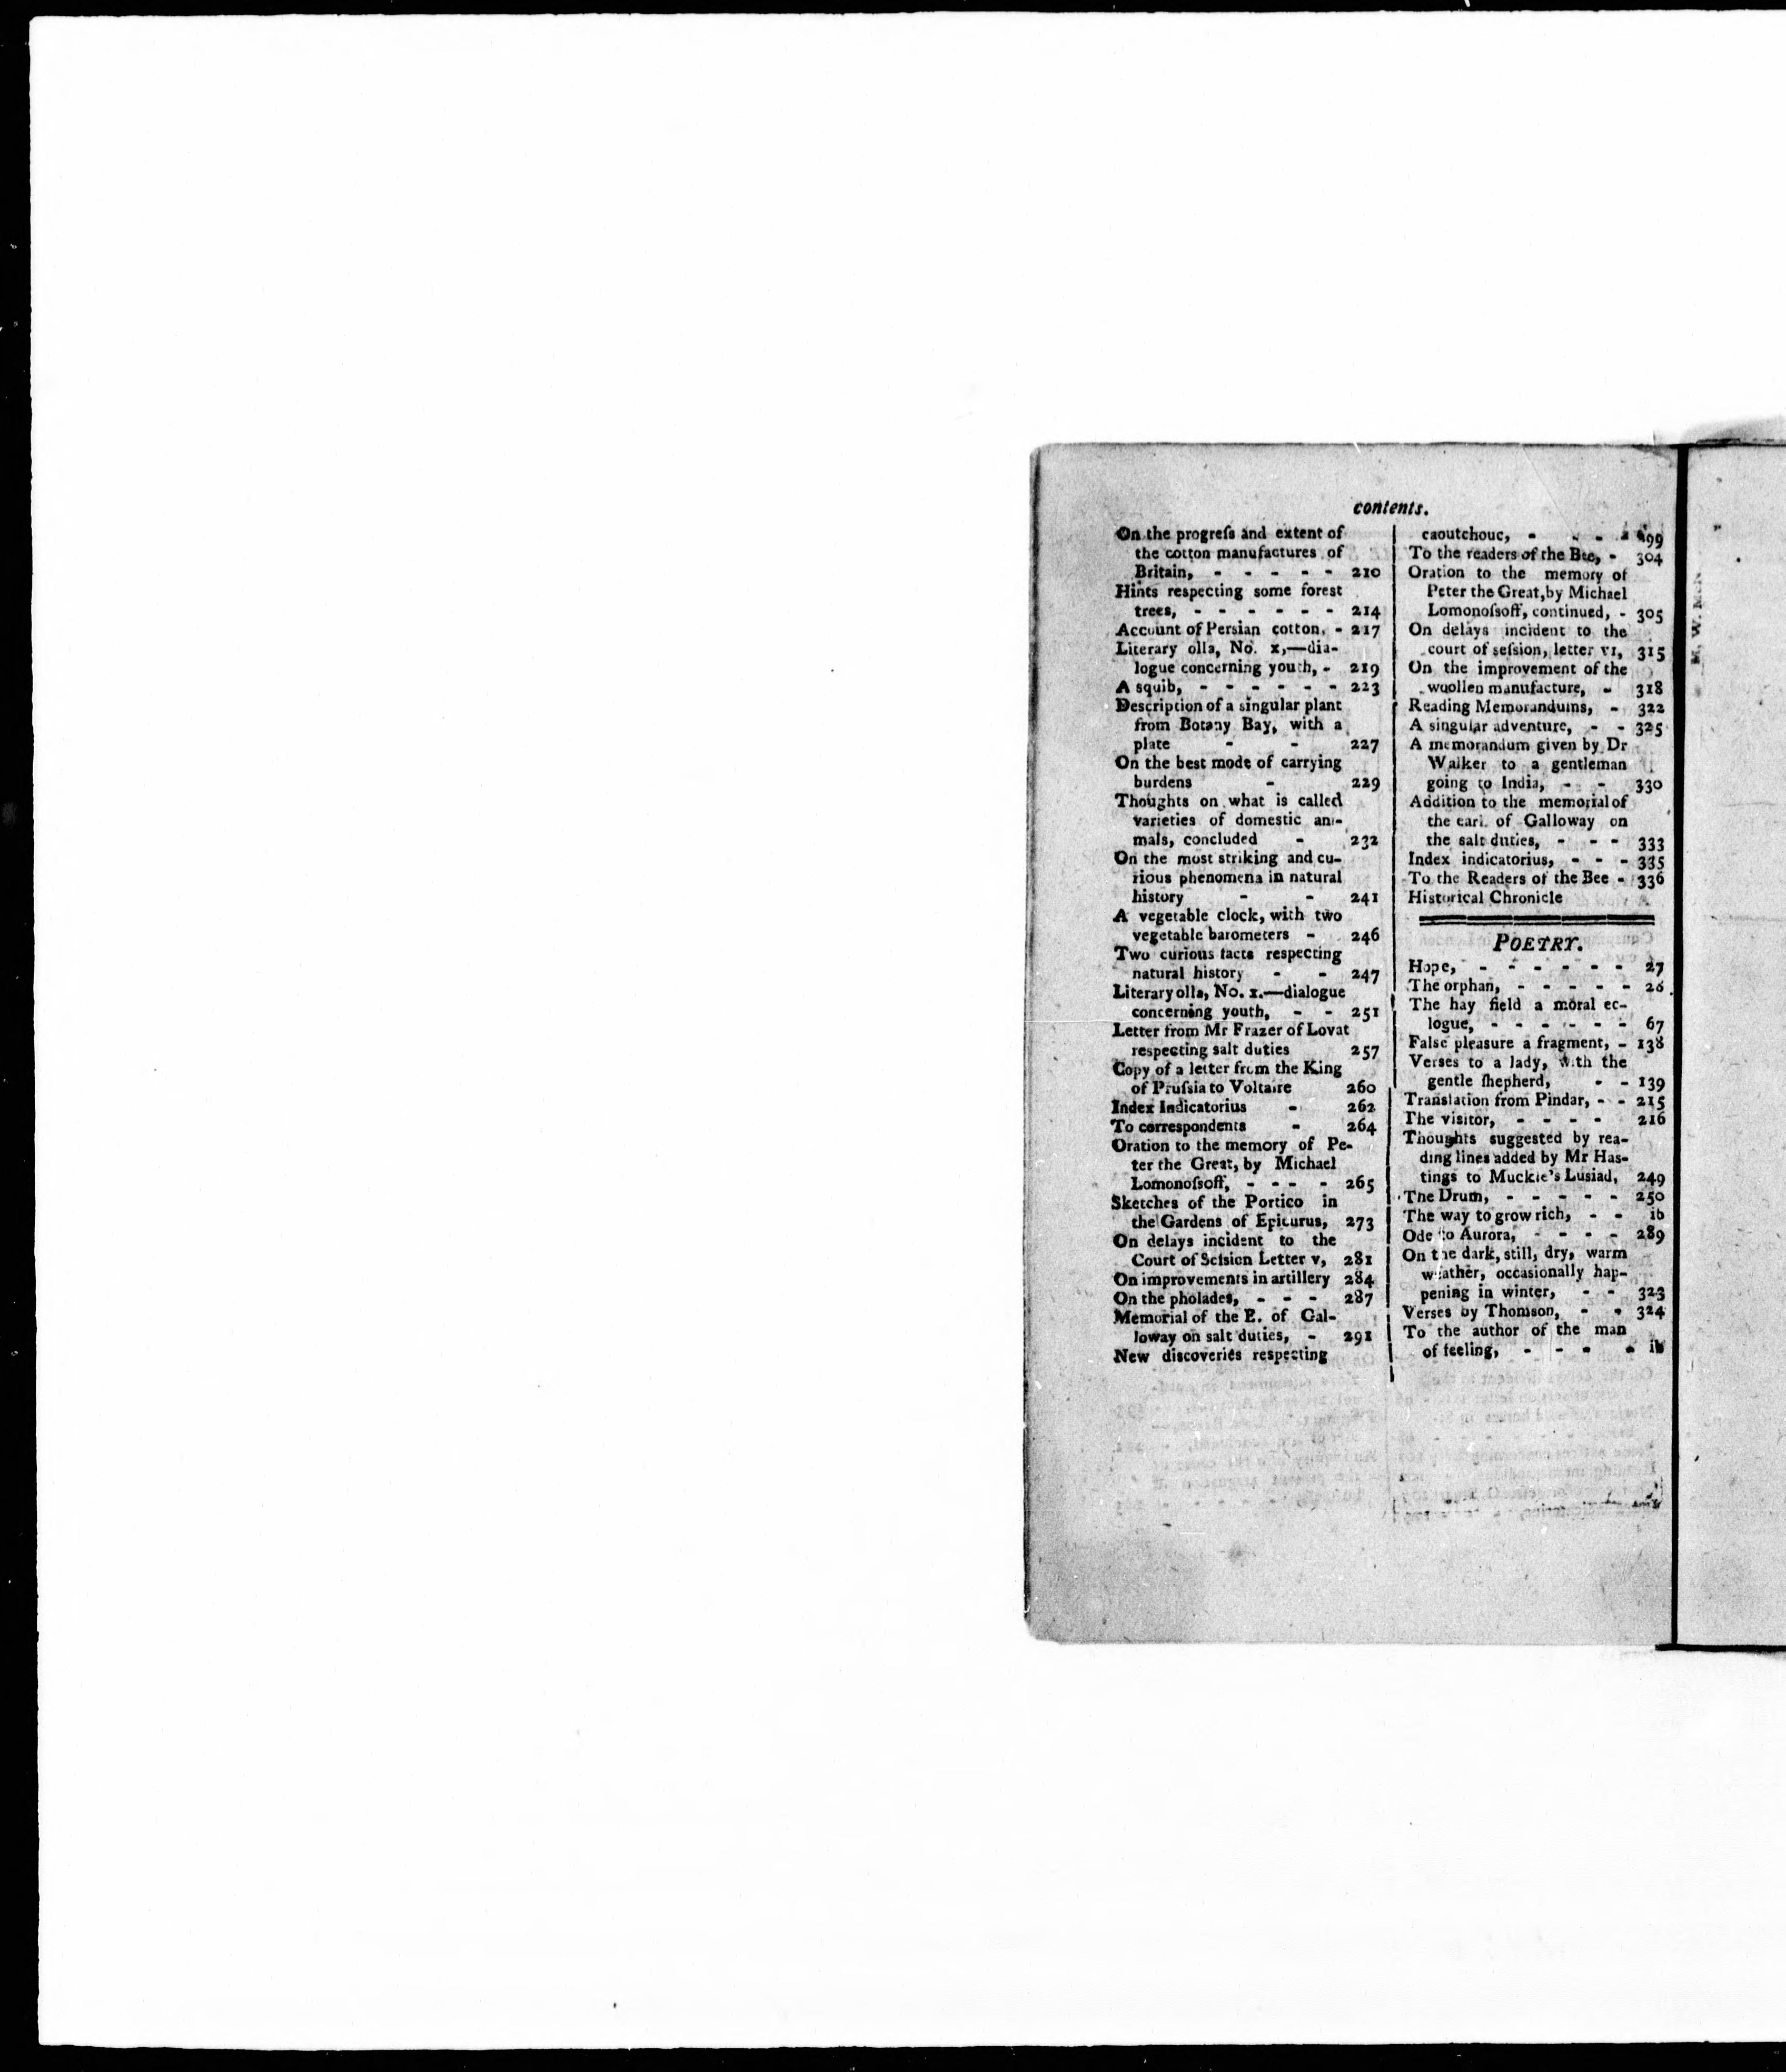 contents.
On the progreſs and extent of
the cotton manufactures of
Britain, - - - - - 210
Hints respecting some forest
trees, - - - - - - 214
Account of Persian cotton, - 217
Literary olla, No. x,—dia-
logue concerning youth, - 219
A squib, - - - - - - 223
Description of a singular plant
from Botany Bay, with a
plate - - 227
On the best mode of carrying
burdens - 229
Thoughts on what is called
varieties of domestic ani-
mals, concluded - 232
On the most striking and cu-
rious phenomena in natural
history - - 241
A vegetable clock, with two
vegetable barometers - 246
Two curious facts respecting
natural history - - 247
Literary olla, No. x.—dialogue
concerning youth, - - 251
Letter from Mr Frazer of Lovat
respecting salt duties 257
Copy of a letter from the King
of Pruſsia to Voltaire 260
Index Indicatorius - 262
To correspondents - 264
Oration to the memory of Pe-
ter the Great, by Michael
Lomonoſsoff, - - - - 265
Sketches of the Portico in
the Gardens of Epicurus, 273
On delays incident to the
Court of Seſsion Letter v, 281
On improvements in artillery 284
On the pholades, - - - 287
Memorial of the E. of Gal-
loway on salt duties, - 291
New discoveries respecting
caoutchouc, - - - - 299
To the readers of the Bee, - 304
Oration to the memory of
Peter the Great, by Michael
Lomonoſsoff, continued, - 305
On delays incident to the
court of seſsion, letter vi, 315
On the improvement of the
woollen manufacture, - 318
Reading Memorandums, - 322
A singular adventure, - - 325
A memorandum given by Dr
Walker to a gentleman
going to India, - - 330
Addition to the memorial of
the earl of Galloway on
the salt duties, - - - 333
Index indicatorius, - - - 335
To the Readers of the Bee - 336
Historical Chronicle
POETRY.
Hope, - - - - - - 27
The orphan, - - - - - 28
The hay field a moral ec-
logue, - - - - - - 67
False pleasure a fragment, - 138
Verses to a lady, with the
gentle ſhepherd, - - 139
Translation from Pindar, - - 215
The visitor, - - - - 216
Thoughts suggested by rea-
ding lines added by Mr Has-
tings to Muckie's Lusiad, 249
The Drum, - - - - - 250
The way to grow rich, - - ib
Ode to Aurora, - - - - 289
On the dark, still, dry, warm
weather, occasionally hap-
pening in winter, - - 323
Verses by Thomson, - - 324
To the author of the man
of feeling, - - - - ib